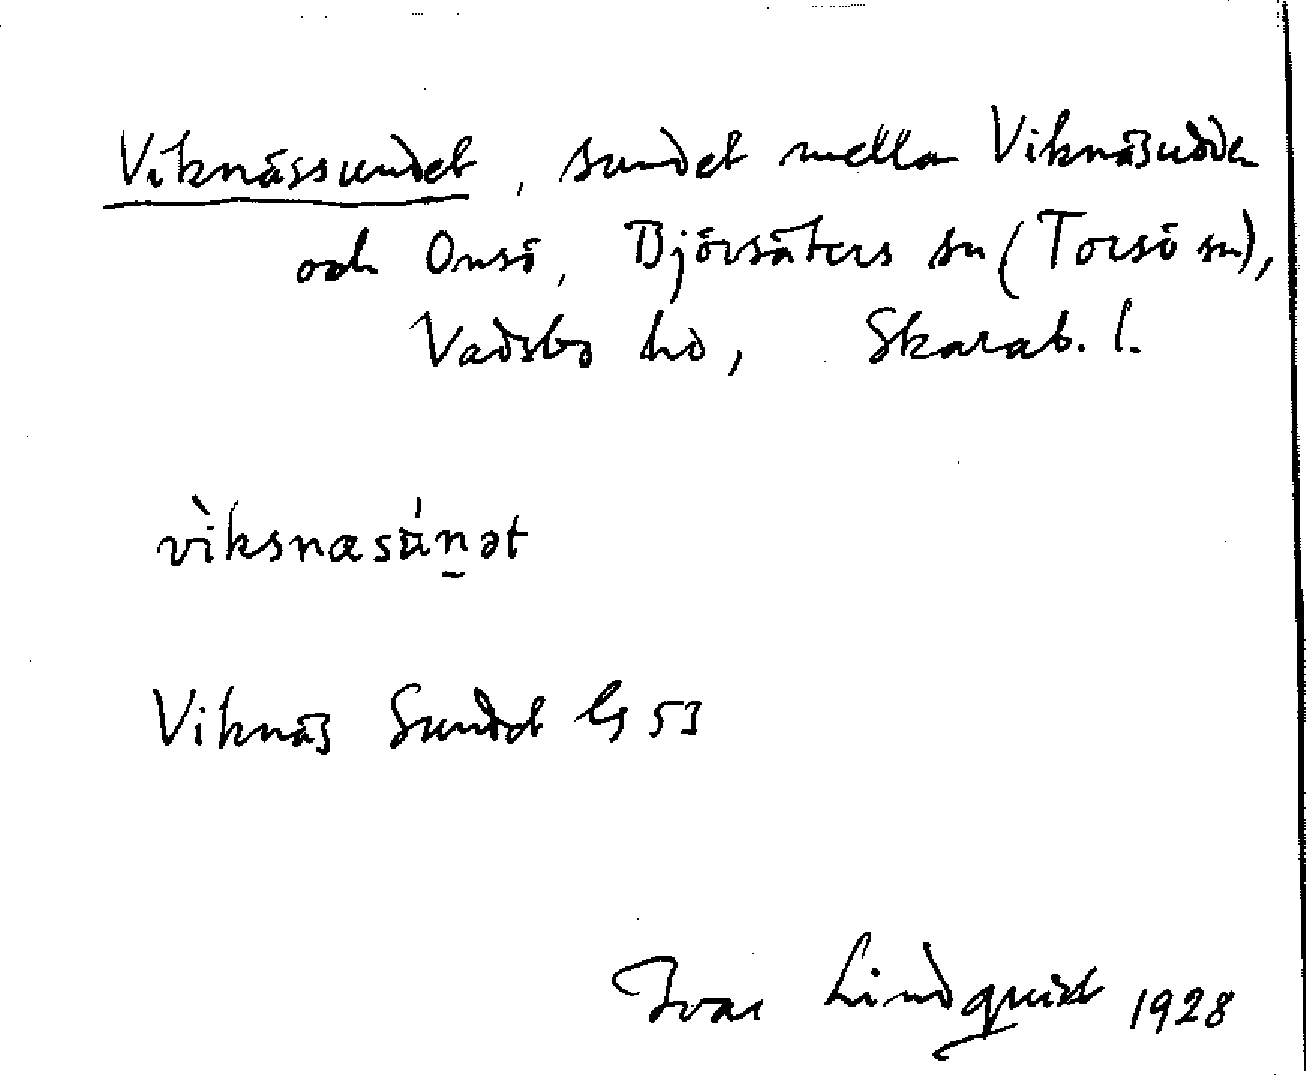 Viknässundet, sundet mellan Viknäsudden
och Onsö, Björsäters sn (Torsö sn),
Vadsbo hd, Skarab. l.
vìksnæsún̠ət
Viknäs Sundet GS 53
Ivar Lindquist 1928